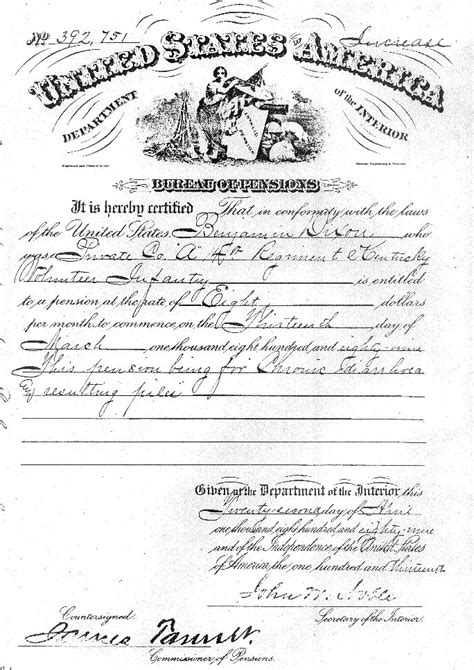 No 392,751 Increase
UNITED STATES OF AMERICA
DEPARTMENT of the INTERIOR
BUREAU OF PENSIONS
It is hereby certified That in conformity with the laws
of the United States, Benjamin Dixon who
was a Private Co. A 4th Regiment Kentucky
Volunteer Infantry is entitled
to a pension at the rate of Eight dollars
per month to commence on the Thirteenth day of
March one thousand eight hundred and eighty-nine
This pension being for Chronic diarrhoea
resulting piles
Given at the Department of the Interior this
Twenty-second day of
one thousand eight hundred and eighty-nine
and of the Independence of the United States
of America the one hundred and thirteenth
John W. Noble
Countersigned Secretary of the Interior.
James Tanner
Commissioner of Pensions.